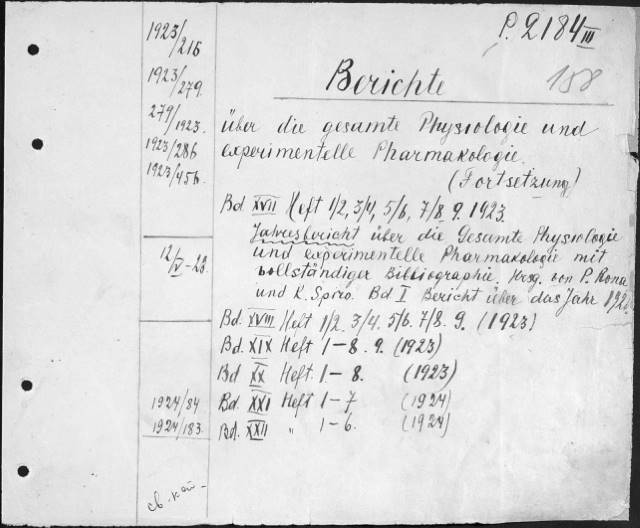 P. 2184 III
158
Berichte
1923/216
1923/279.
279/1923.
1923/286
1923/456.
über die gesamte Physiologie und
experimentelle Pharmakologie.
(Fortsetzung)
Bd. XVII Heft 1/2, 3/4, 5/6, 7/8, 9. 1923.
12/V-23.
Jahresbericht über die Gesamte Physiologie
und experimentelle Pharmakologie mit
vollständiger Bibliographie. Hrsg. von P. Rona
und K. Spiro. Bd. I Bericht über das Jahr
Bd. XVIII Heft 1/2. 3/4. 5/6. 7/8. 9. (1923)
Bd. XIX Heft 1-8. 9. (1923)
Bd XX Heft. 1-8. (1923)
1924/84
Bd. XXI Heft 1-7 (1924)
1924/183.
Bd. XXII " 1-6. (1924)